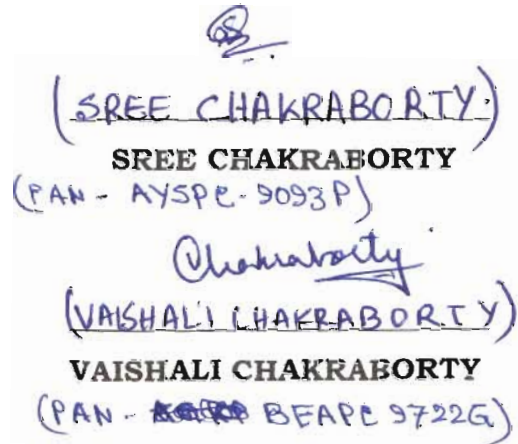 (SREE CHAKRABORTY)
SREE CHAKRABORTY
(PAN - AYSPC-9093P)
Chakraborty
(VAISHALI CHAKRABORTY)
VAISHALI CHAKRABORTY
(PAN - BEAPC 9722G)